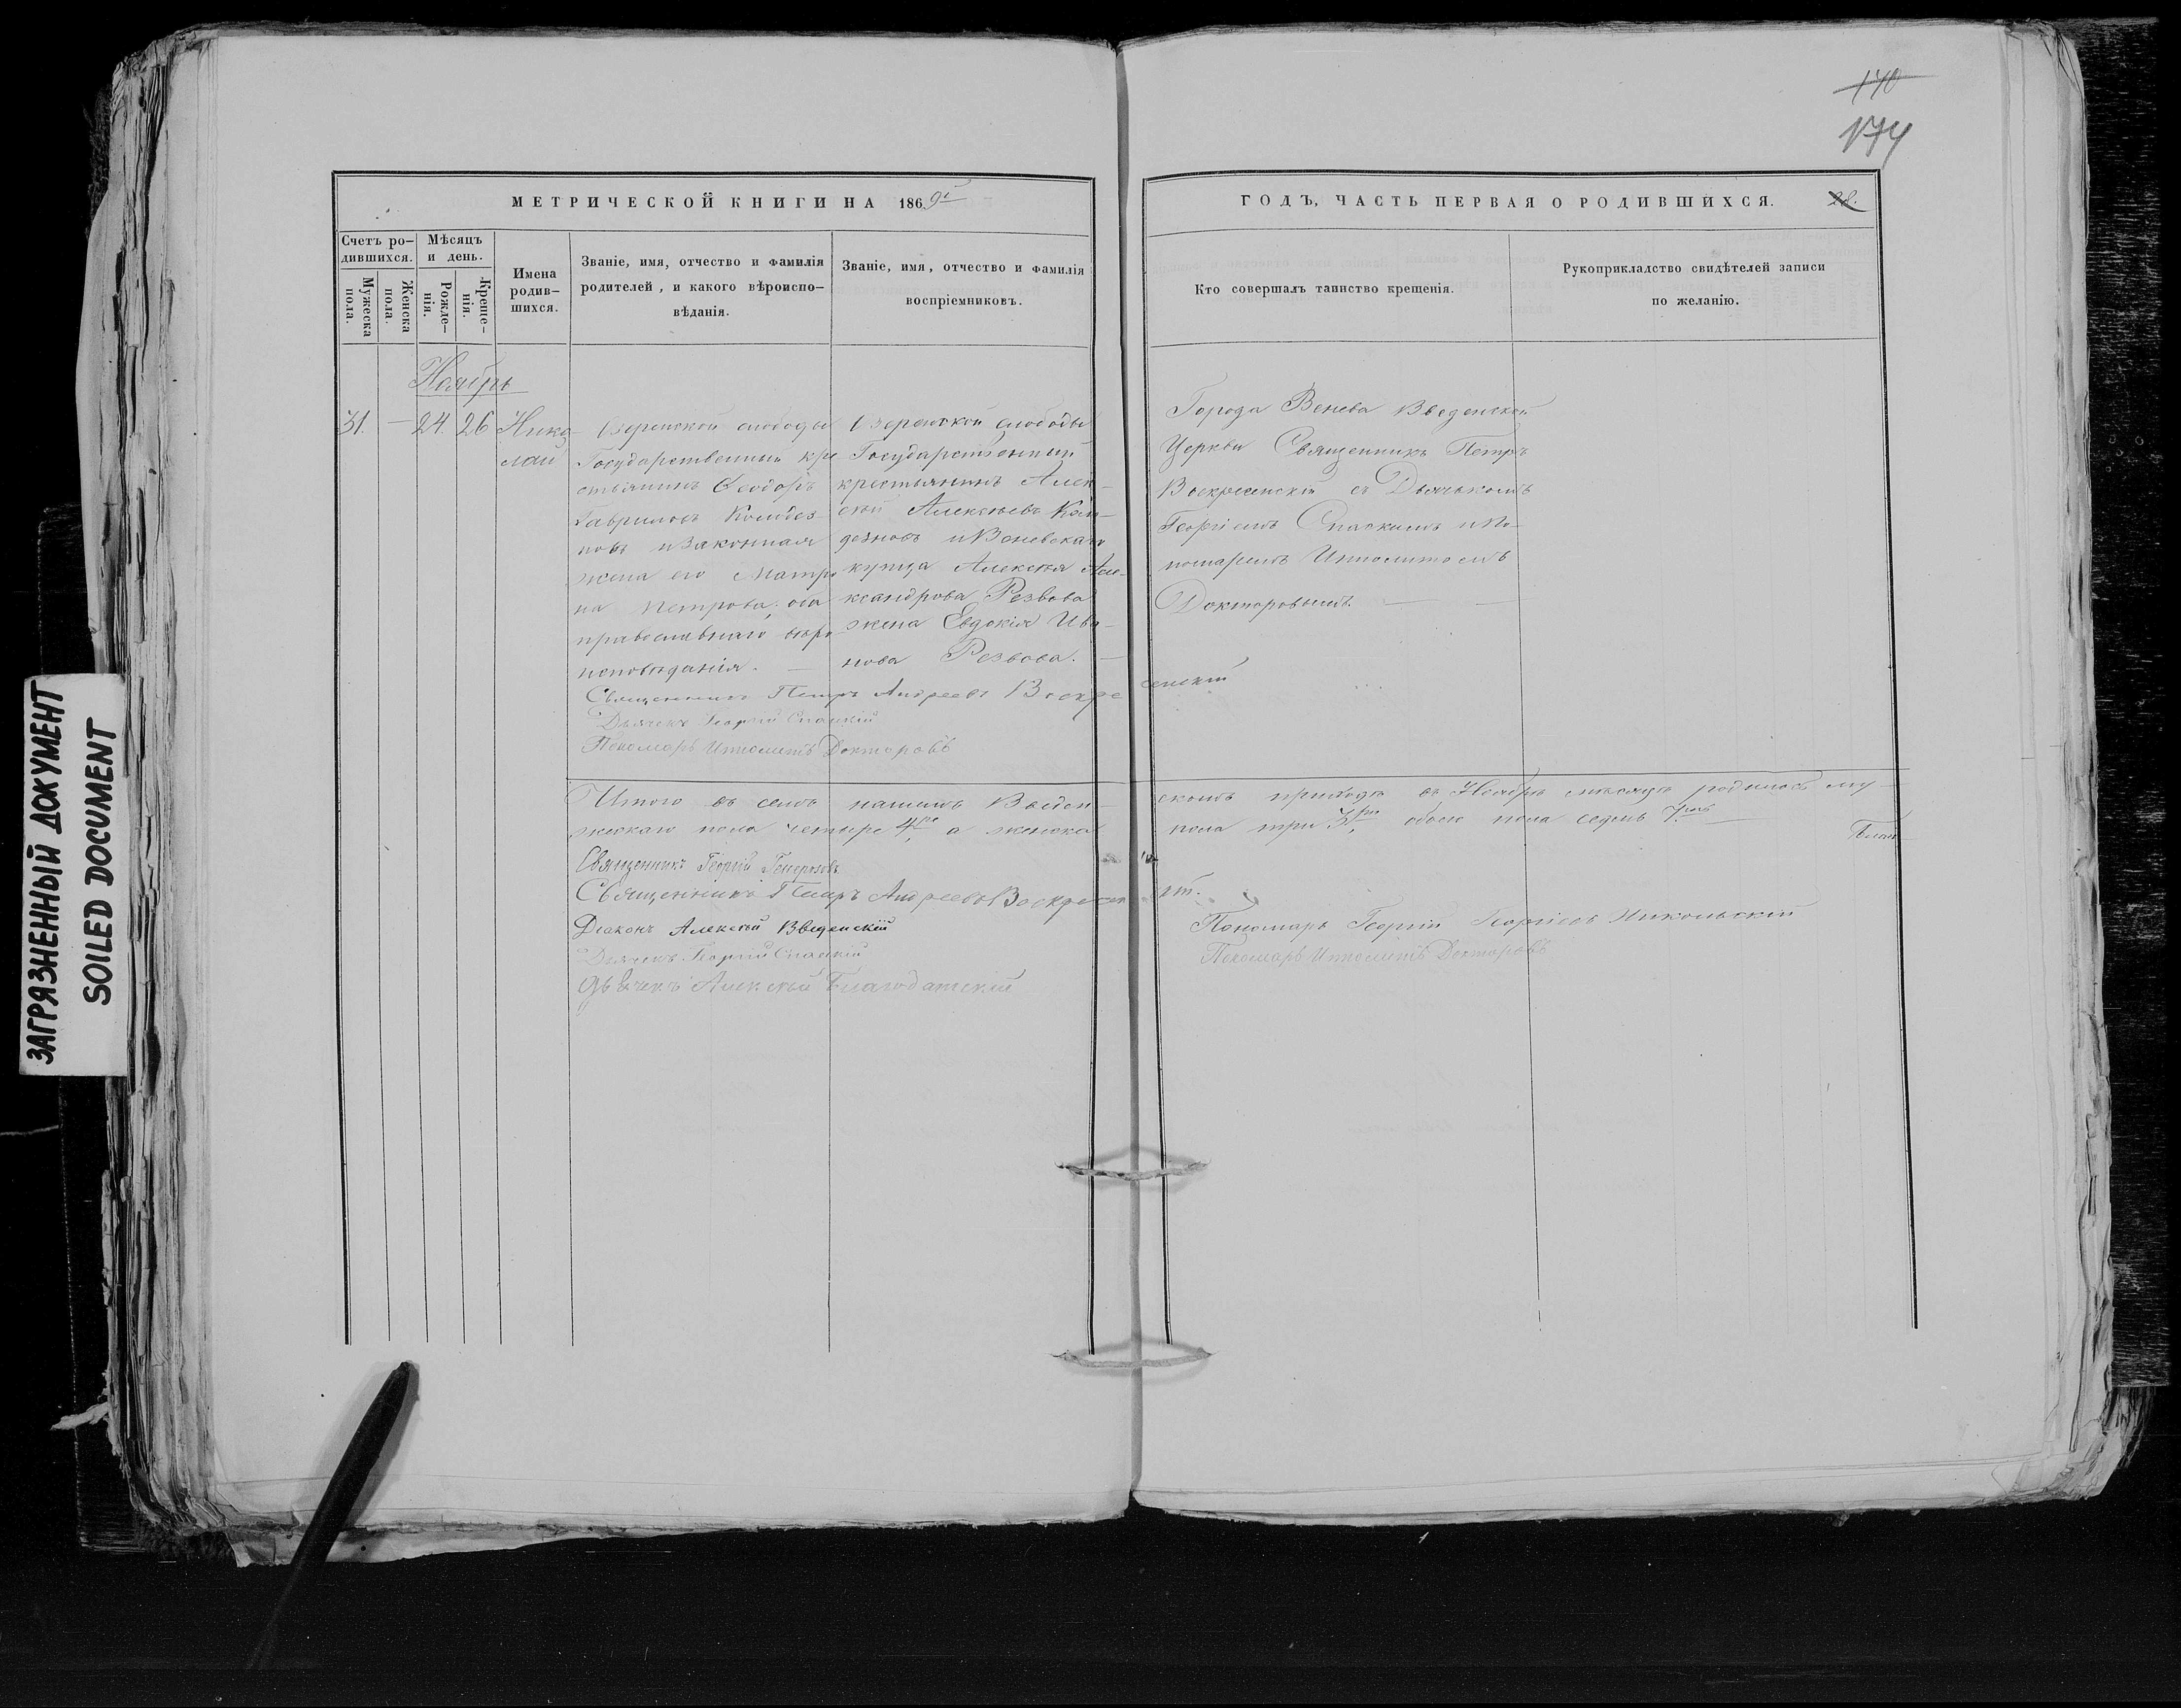 170
174
МЕТРИЧЕСКОЙ КНИГИ НА 1869й
ГОДЪ, ЧАСТЬ ПЕРВАЯ О РОДИВШИХСЯ. 28.
Счетъ ро-
дившихся.
Мужеска
пола.
Женска
пола.
Мѣсяцъ
и день.
Рожде-
нія.
Креще-
нія.
Имена
родив-
шихся.
Званіе, имя, отчество и фамилія
родителей, и какого вѣроиспо-
вѣданія.
Званіе, имя, отчество и фамилія
воспріемниковъ.
Кто совершалъ таинство крещенія.
Рукоприкладство свидѣтелей записи
по желанію.
Ноябрь
31. — 24. 26 Нико-
лай
Озеренской слободы
Государственный кре
стьянинъ Ѳеодоръ
Гавриловъ Колодез-
новъ и законная
жена его Матро
на Петрова; оба
православнаго вѣро
исповѣданія. —
Озеренской слободы
Государственный
крестьянинъ Алек-
сѣй Алексѣевъ Коло-
дезновъ и Веневскаго
купца Алексѣя Але-
ксандрова Резвова
жена Евдокія Ива-
нова Резвова. —
Города Венева Введенской
Церкви Священникъ Петръ
Воскресенскій съ Дьячькомъ
Георгіемъ Спаскимъ и По-
номаремъ Ипполитомъ
Докторовымъ. — —
Священникъ Петръ Андреевъ Воскресенскій
Дьячекъ Георгій Спасскій
Пономарь Ипполитъ Докторовъ
Итого въ семъ нашемъ Введенскомъ приходѣ въ Ноябрѣ мѣсяцѣ родилось му-
жескаго пола четыре 4ре, а женска пола три 3ри, обоего пола седмь 7мь
Священникъ Георгій Генерозовъ
Священникъ Петръ Андреевъ Воскресенскій.
Діаконъ Алексѣй Введенскій
Дьячекъ Георгій Спасскій
Дьячекъ Алексѣй Благодатскій
Пономарь Георгій Георгіевъ Никольскій
Пономарь Ипполитъ Докторовъ
ЗАГРЯЗНЕННЫЙ ДОКУМЕНТ
SOILED DOCUMENT